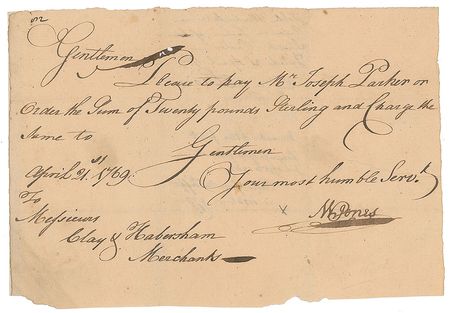 Gentlemen
Please to pay Mr. Joseph Parker or
Order the Sum of Twenty pounds Sterling and Charge the
same to
Gentlemen
April 21st. 1769. Your most humble Servt.
To
Messieurs
Clay & Habersham
Merchants
NWJones